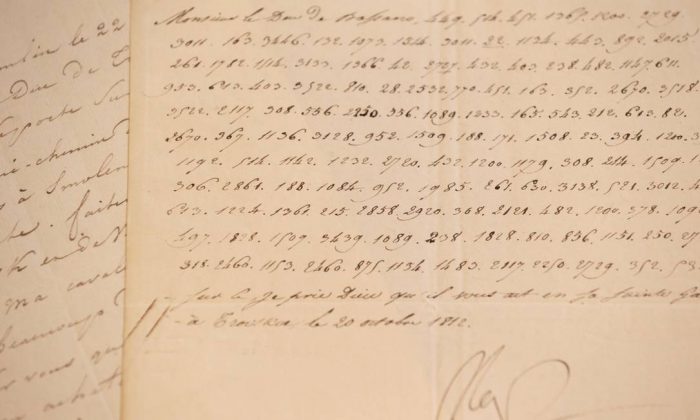 Monsieur le Duc de Bassano, 449. 514. 451. 1365. 1200. 2729.
3011. 163. 3446. 132. 1073. 1344. 3011. 22. 1134. 443. 892. 2015
261. 1782. 1114. 3133. 1366. 42. 2727. 432. 403. 238. 482. 1147. 611.
953. 613. 403. 3522. 810. 28. 2532. 770. 451. 163. 352. 2670. 3518.
3522. 2117. 308. 536. 2250. 336. 1089. 1233. 165. 543. 212. 613. 82.
2670. 367. 1136. 3128. 952. 1509. 188. 171. 1508. 23. 394. 1210. 3
1192. 514. 1142. 1232. 2720. 432. 1200. 1179. 308. 214. 1509. 1
306. 2861. 188. 1084. 952. 1985. 261. 630. 3138. 521. 3012. 4
613. 1224. 1361. 215. 2858. 2920. 368. 2121. 482. 1200. 378. 109
497. 1828. 1509. 3439. 1089. 238. 1828. 810. 836. 1151. 250. 27
318. 2460. 1153. 2460. 875. 1134. 1483. 2117. 2250. 2729. 352. 53
- Sur ce je prie Dieu qu'il vous ait en sa Sainte G
- à Troitskoe, le 20 octobre 1812.
le 22
Duc de
chemin
à Smolen
faites
ma caval
beaucoup
vous que